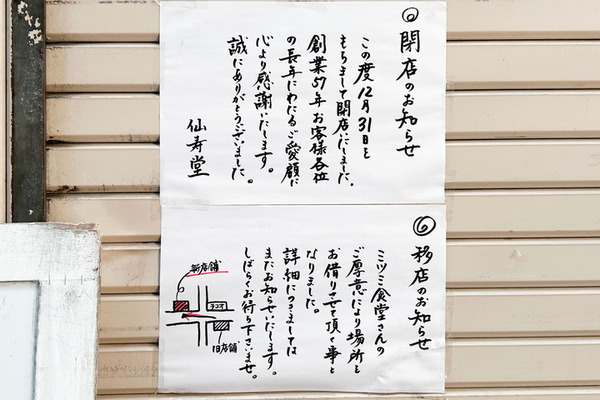 ◎閉店のお知らせ
この度12月31日を
もちまして閉店いたしました。
創業57年お客様各位
の長年にわたるご愛顧に
心より感謝いたします。
誠にありがとうございました。
仙寿堂
◎移店のお知らせ
ミツミ食堂さんの
ご厚意により場所を
お借りさせて頂く事と
なりました。
詳細につきましては
またお知らせいたします。
しばらくお待ち下さいませ。
新店舗
旧店舗